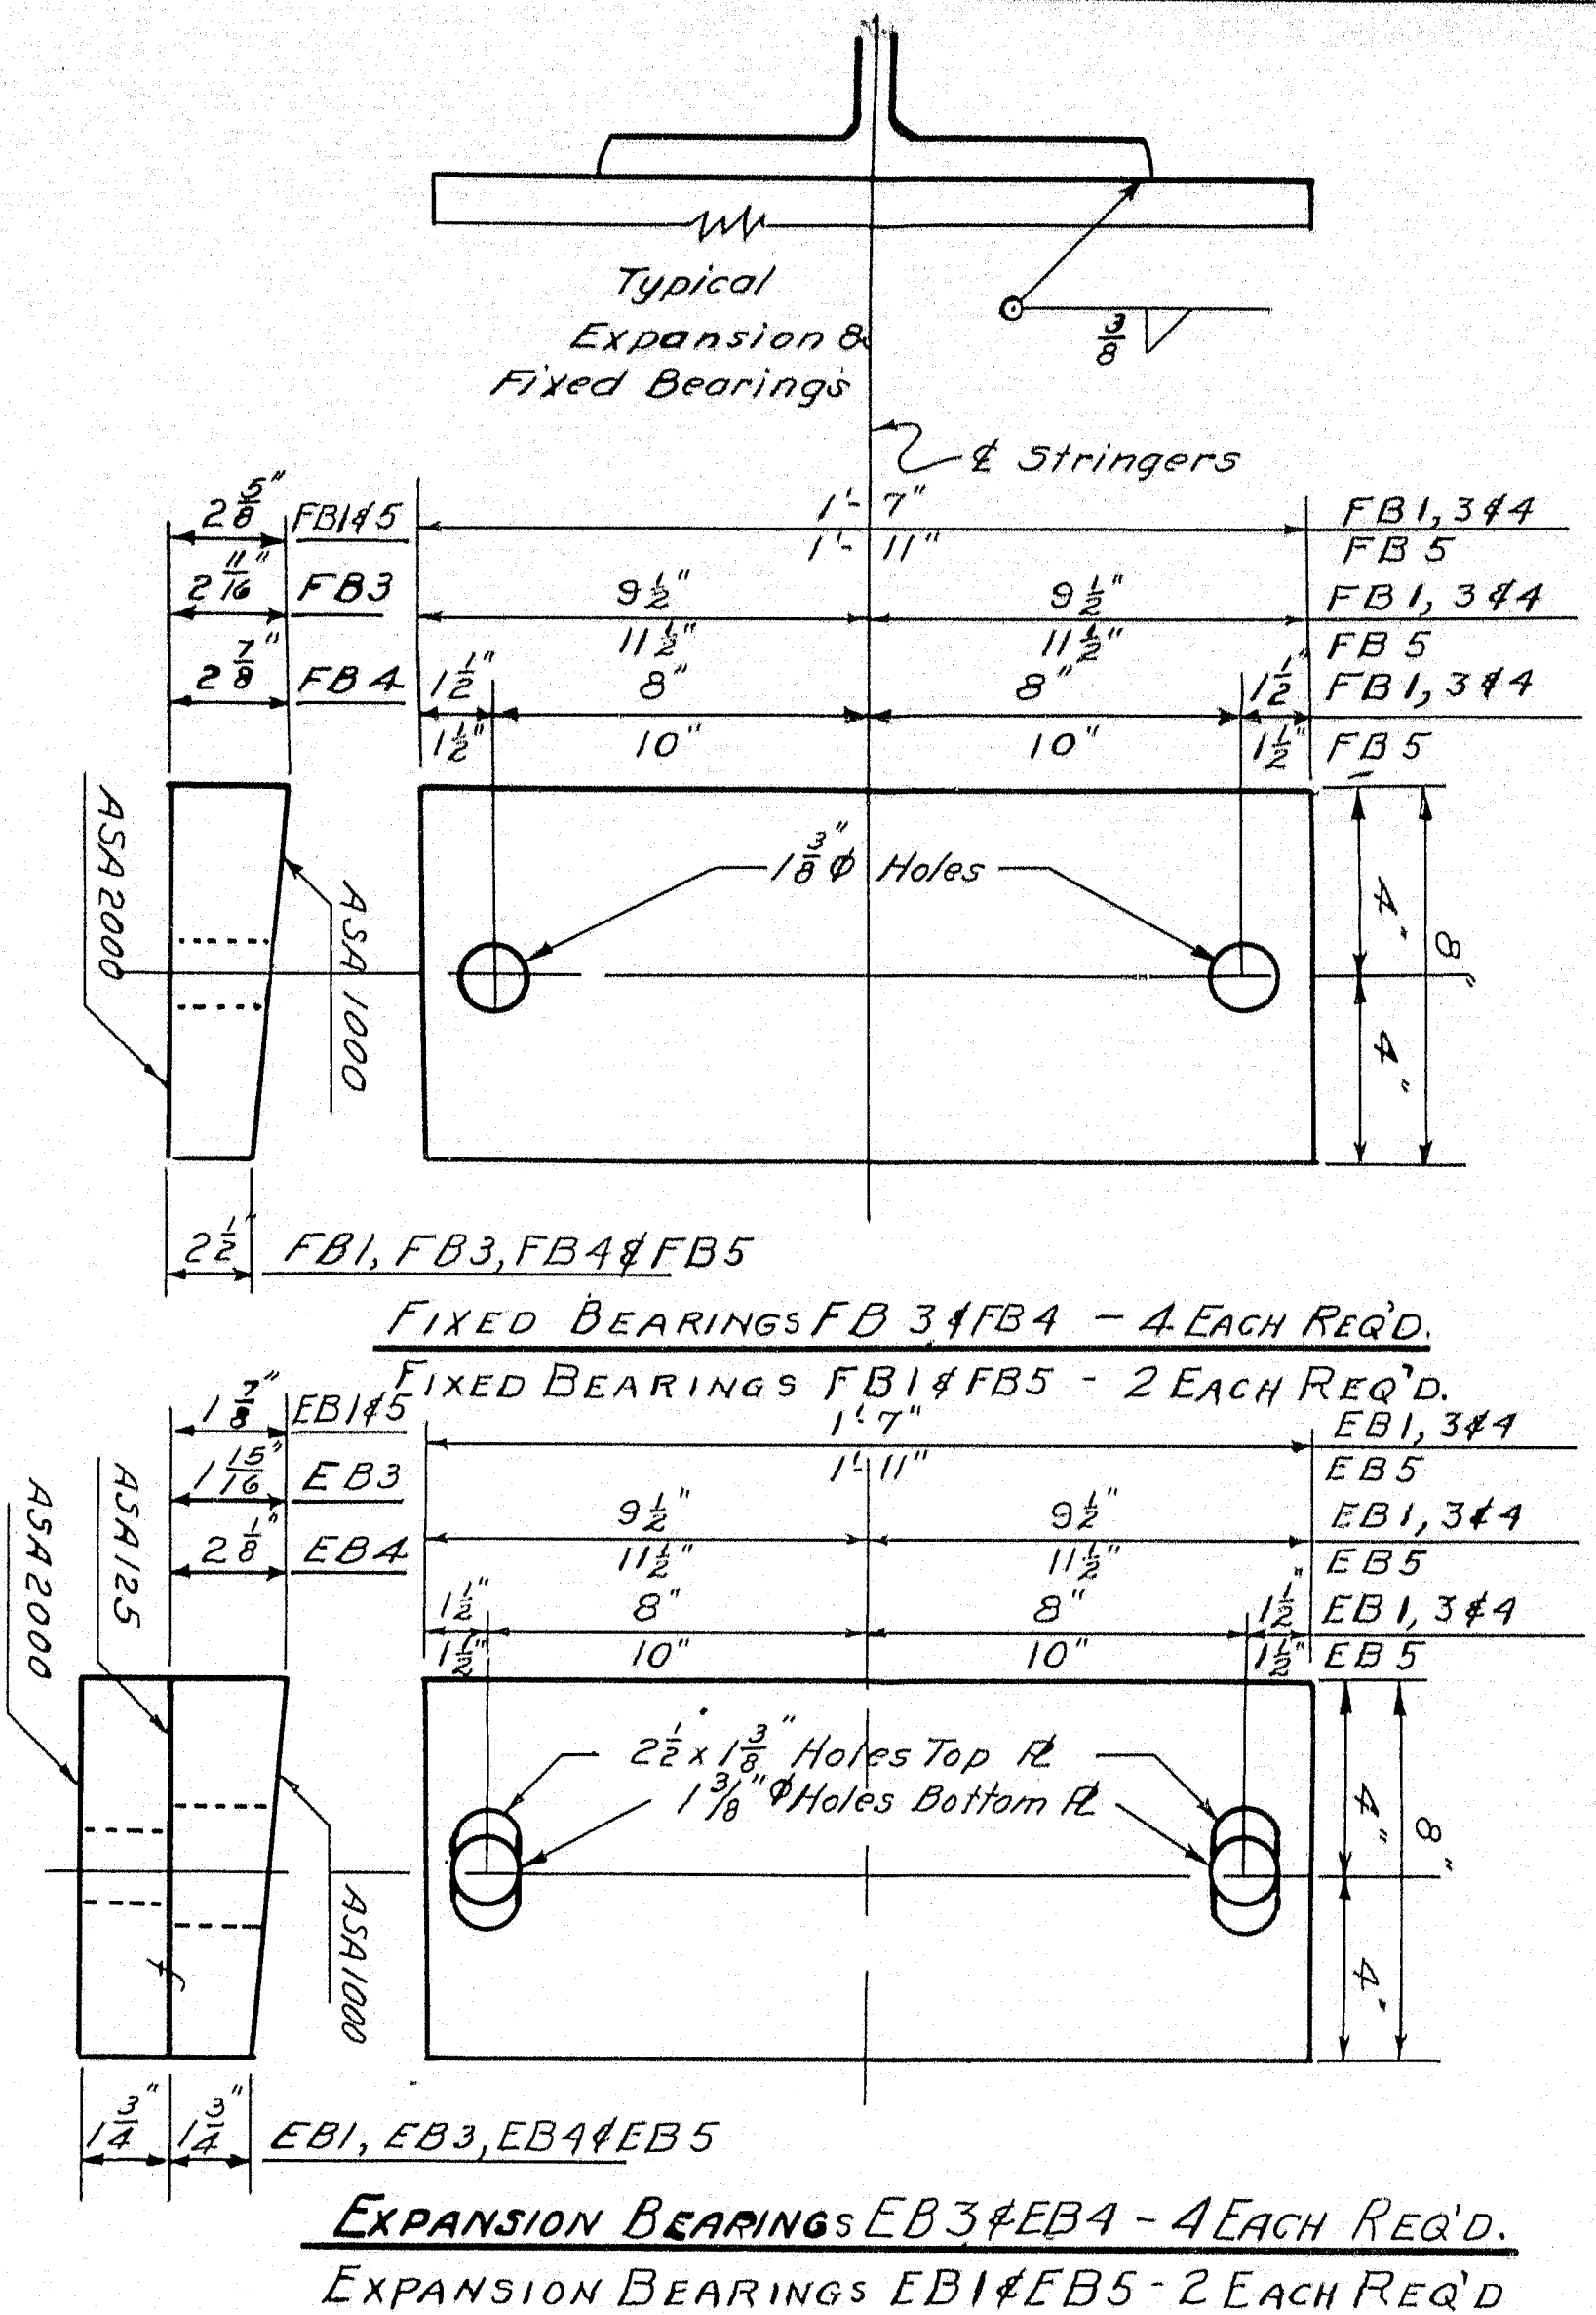 Typical
Expansion &
Fixed Bearings
3/8
℄ Stringers
2 5/8" FB1&5
1'-7" FB1, 3&4
1'-11" FB5
2 11/16" FB3
9 1/2" 9 1/2" FB1, 3&4
11 1/2" 11 1/2" FB5
2 7/8" FB4
1 1/2" 8" 8" 1 1/2" FB1, 3&4
1 1/2" 10" 10" 1 1/2" FB5
ASA 2000
ASA 1000
1 3/8" Φ Holes
4"
8"
4"
2 1/2" FB1, FB3, FB4&FB5
FIXED BEARINGS FB3&FB4 - 4 EACH REQ'D.
FIXED BEARINGS FB1&FB5 - 2 EACH REQ'D.
1 7/8" EB1&5
1'-7" EB1, 3&4
1'-11" EB5
1 15/16" EB3
9 1/2" 9 1/2" EB1, 3&4
11 1/2" 11 1/2" EB5
2 1/8" EB4
1 1/2" 8" 8" 1 1/2" EB1, 3&4
1 1/2" 10" 10" 1 1/2" EB5
ASA 2000
ASA 125
ASA 1000
2 1/2 x 1 3/8" Holes Top ℄
1 3/8" Φ Holes Bottom ℄
4"
8"
4"
f
1 3/4" 1 3/4" EB1, EB3, EB4&EB5
EXPANSION BEARINGS EB3&EB4 - 4 EACH REQ'D.
EXPANSION BEARINGS EB1&EB5 - 2 EACH REQ'D